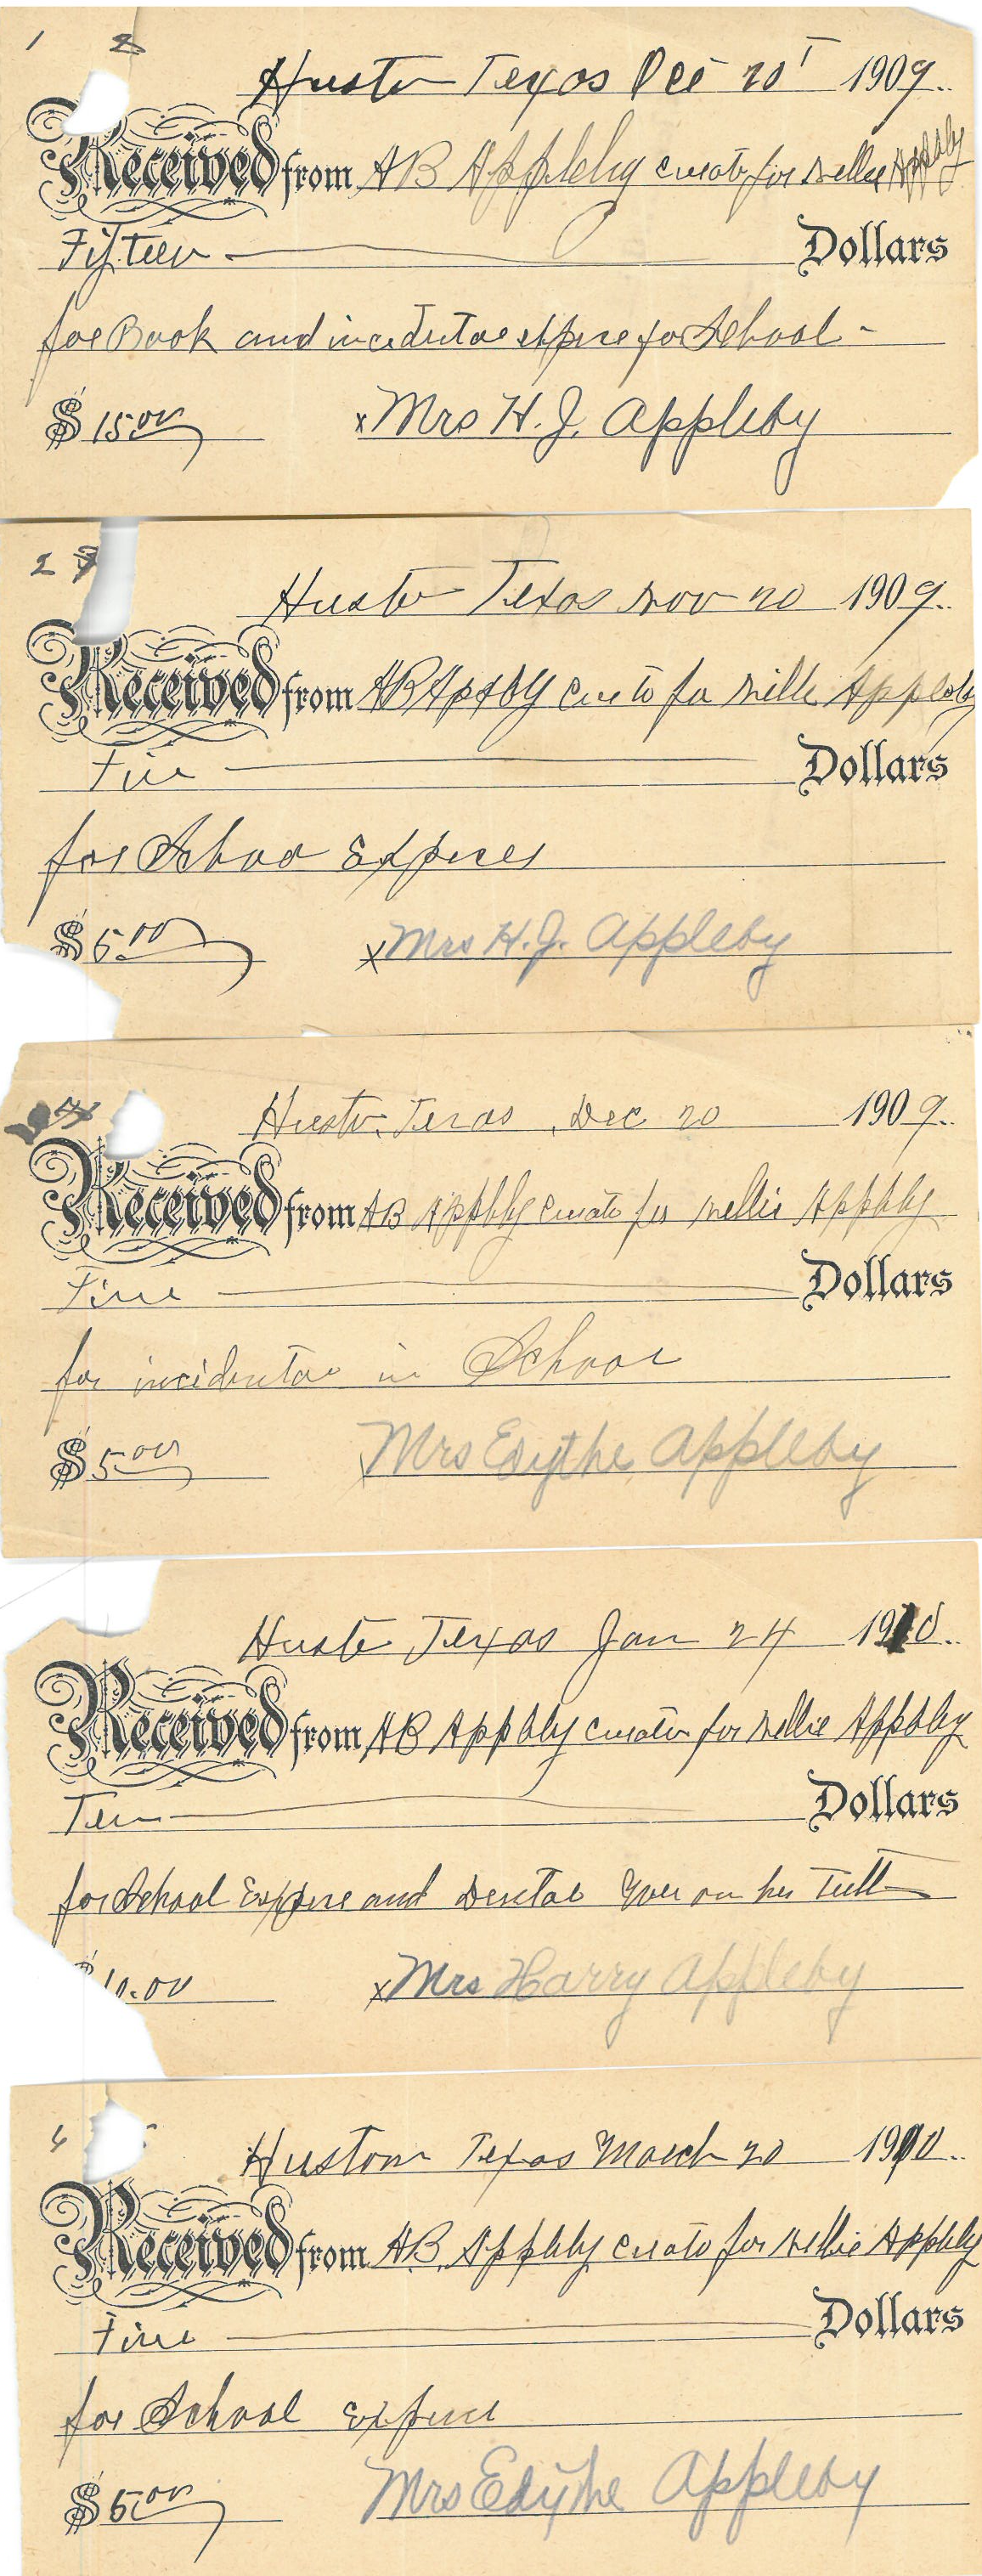 1 2
Huston Texas Oct 20 1909.
Received from AB Appleby curator for Nellie Appleby
Fifteen Dollars
for Book and incidental expense for School
$ 15.00 x Mrs H. J. Appleby
2 3
Huston Texas Nov 20 1909.
Received from AB Appleby curator for Nellie Appleby
Five Dollars
for School Expenses
$ 5.00 x Mrs H. J. Appleby
4
Huston, Texas, Dec 20 1909.
Received from AB Appleby curator for Nellie Appleby
Five Dollars
for incidental in School
$ 5.00 Mrs Edythe Appleby
Huston, Texas Jan 24 1910.
Received from AB Appleby curator for Nellie Appleby
Ten Dollars
for School Expense and Dental on her Teeth
$ 10.00 x Mrs Harry Appleby
Huston Texas March 20 1910.
Received from AB Appleby curator for Nellie Appleby
Five Dollars
for School expense
$ 5.00 Mrs Edythe Appleby